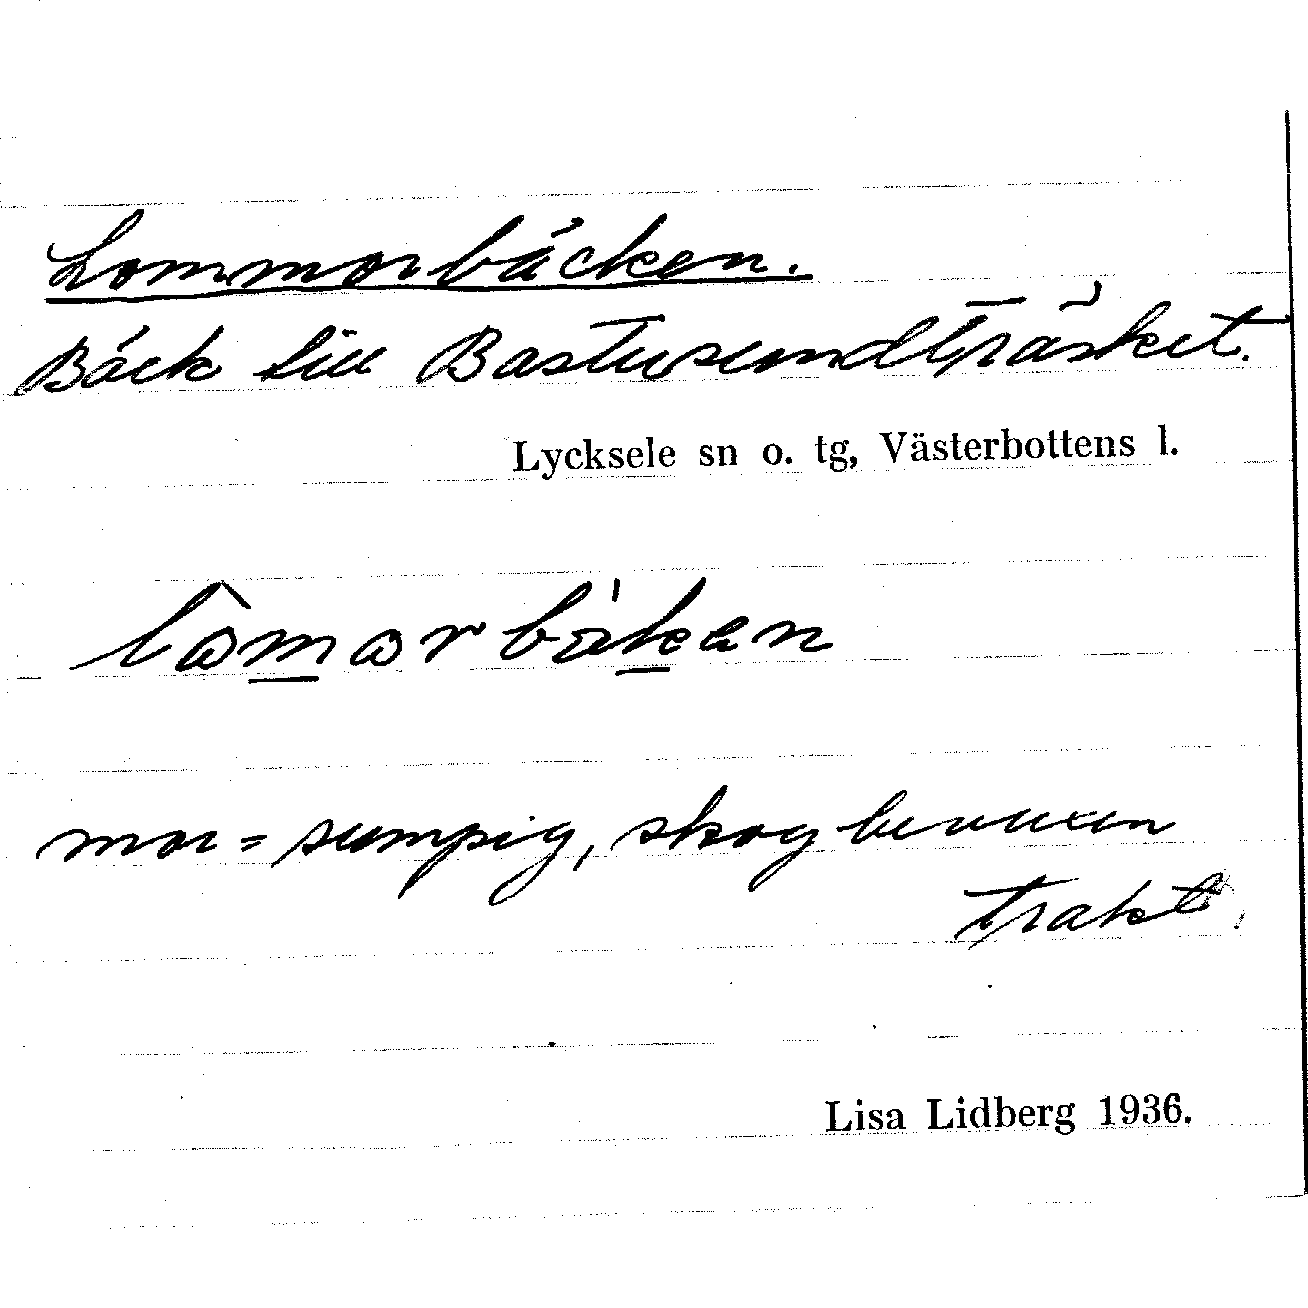 Lommorbäcken.
Bäck till Bastusundträsket.
Lycksele sn o. tg, Västerbottens l.
lômorbäken
mor = sumpig, skog bevuxen
trakt.
Lisa Lidberg 1936.